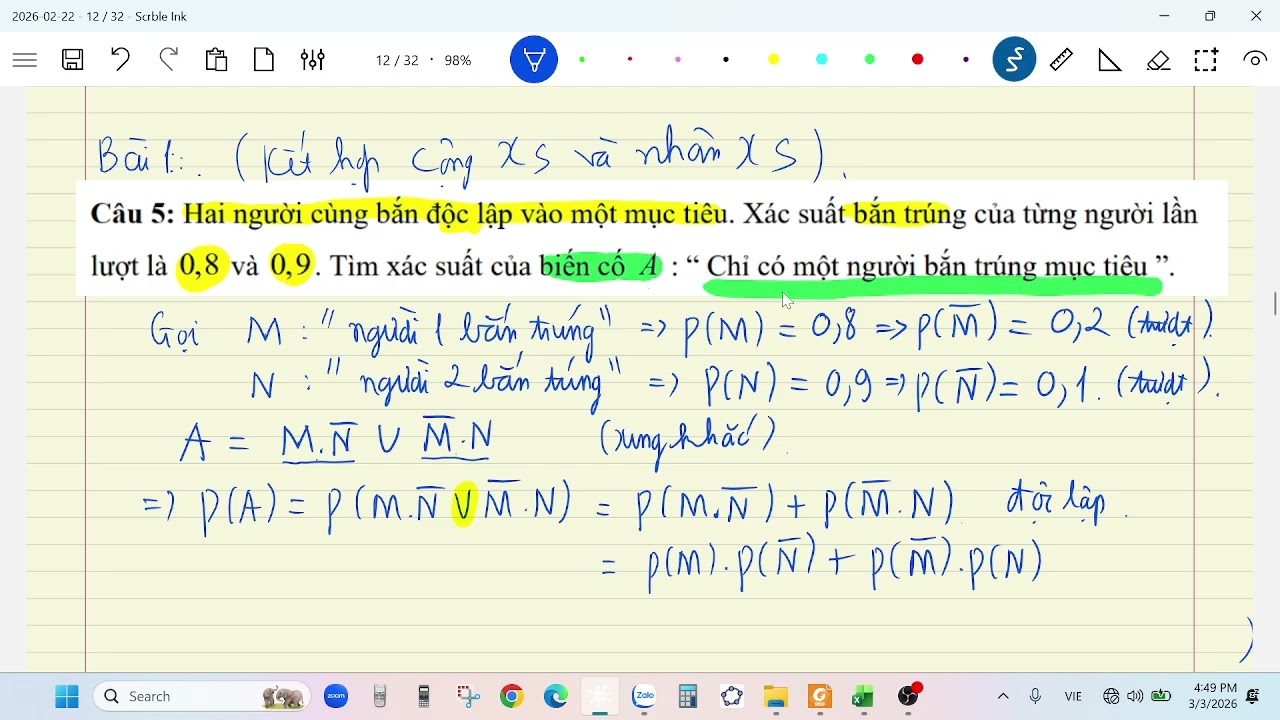 2026-02-22 - 12 / 32 - Scrble Ink
12 / 32 · 98%
Bài 1:. (Kết hợp cộng XS và nhân XS).
Câu 5: Hai người cùng bắn độc lập vào một mục tiêu. Xác suất bắn trúng của từng người lần
lượt là 0,8 và 0,9. Tìm xác suất của biến cố A : “ Chỉ có một người bắn trúng mục tiêu ”.
Gọi M : " người 1 bắn trúng" => P(M) = 0,8 => P(M̅) = 0,2 (trượt).
N : " người 2 bắn túng" => P(N) = 0,9 => P(N̅) = 0,1. (trượt).
A = M.N̅ ∪ M̅.N (xung khắc)
=> P(A) = P(M.N̅ ∪ M̅.N) = P(M.N̅) + P(M̅.N) độc lập.
= P(M).P(N̅) + P(M̅).P(N)
)
Search
zoom
Zalo
PDF
VIE
4:49 PM
3/3/2026